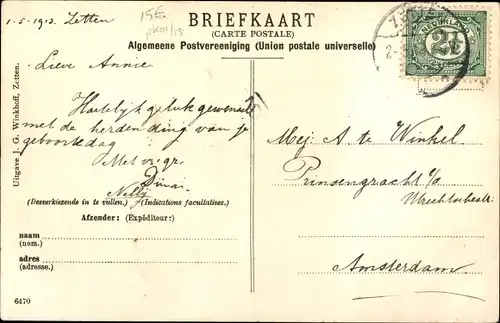 1-5-1913. Zetten
15E
BRIEFKAART
(CARTE POSTALE)
Algemeene Postvereeniging (Union postale universelle)
NEDERLAND
2½
Lieve Annie
Hartelijk geluk gewenscht
met de herdenking van je
geboortedag
Met vr. gr.
Dina
Nelly
Mej A te Winkel
Prinsengracht b/d
Utrechtschestr.
Amsterdam
(Desverkiezende in te vullen.) (Indications facultatives.)
Afzender: (Expéditeur:)
naam
(nom.)
adres
(adresse.)
6470
Uitgave J. G. Winkhoff, Zetten.